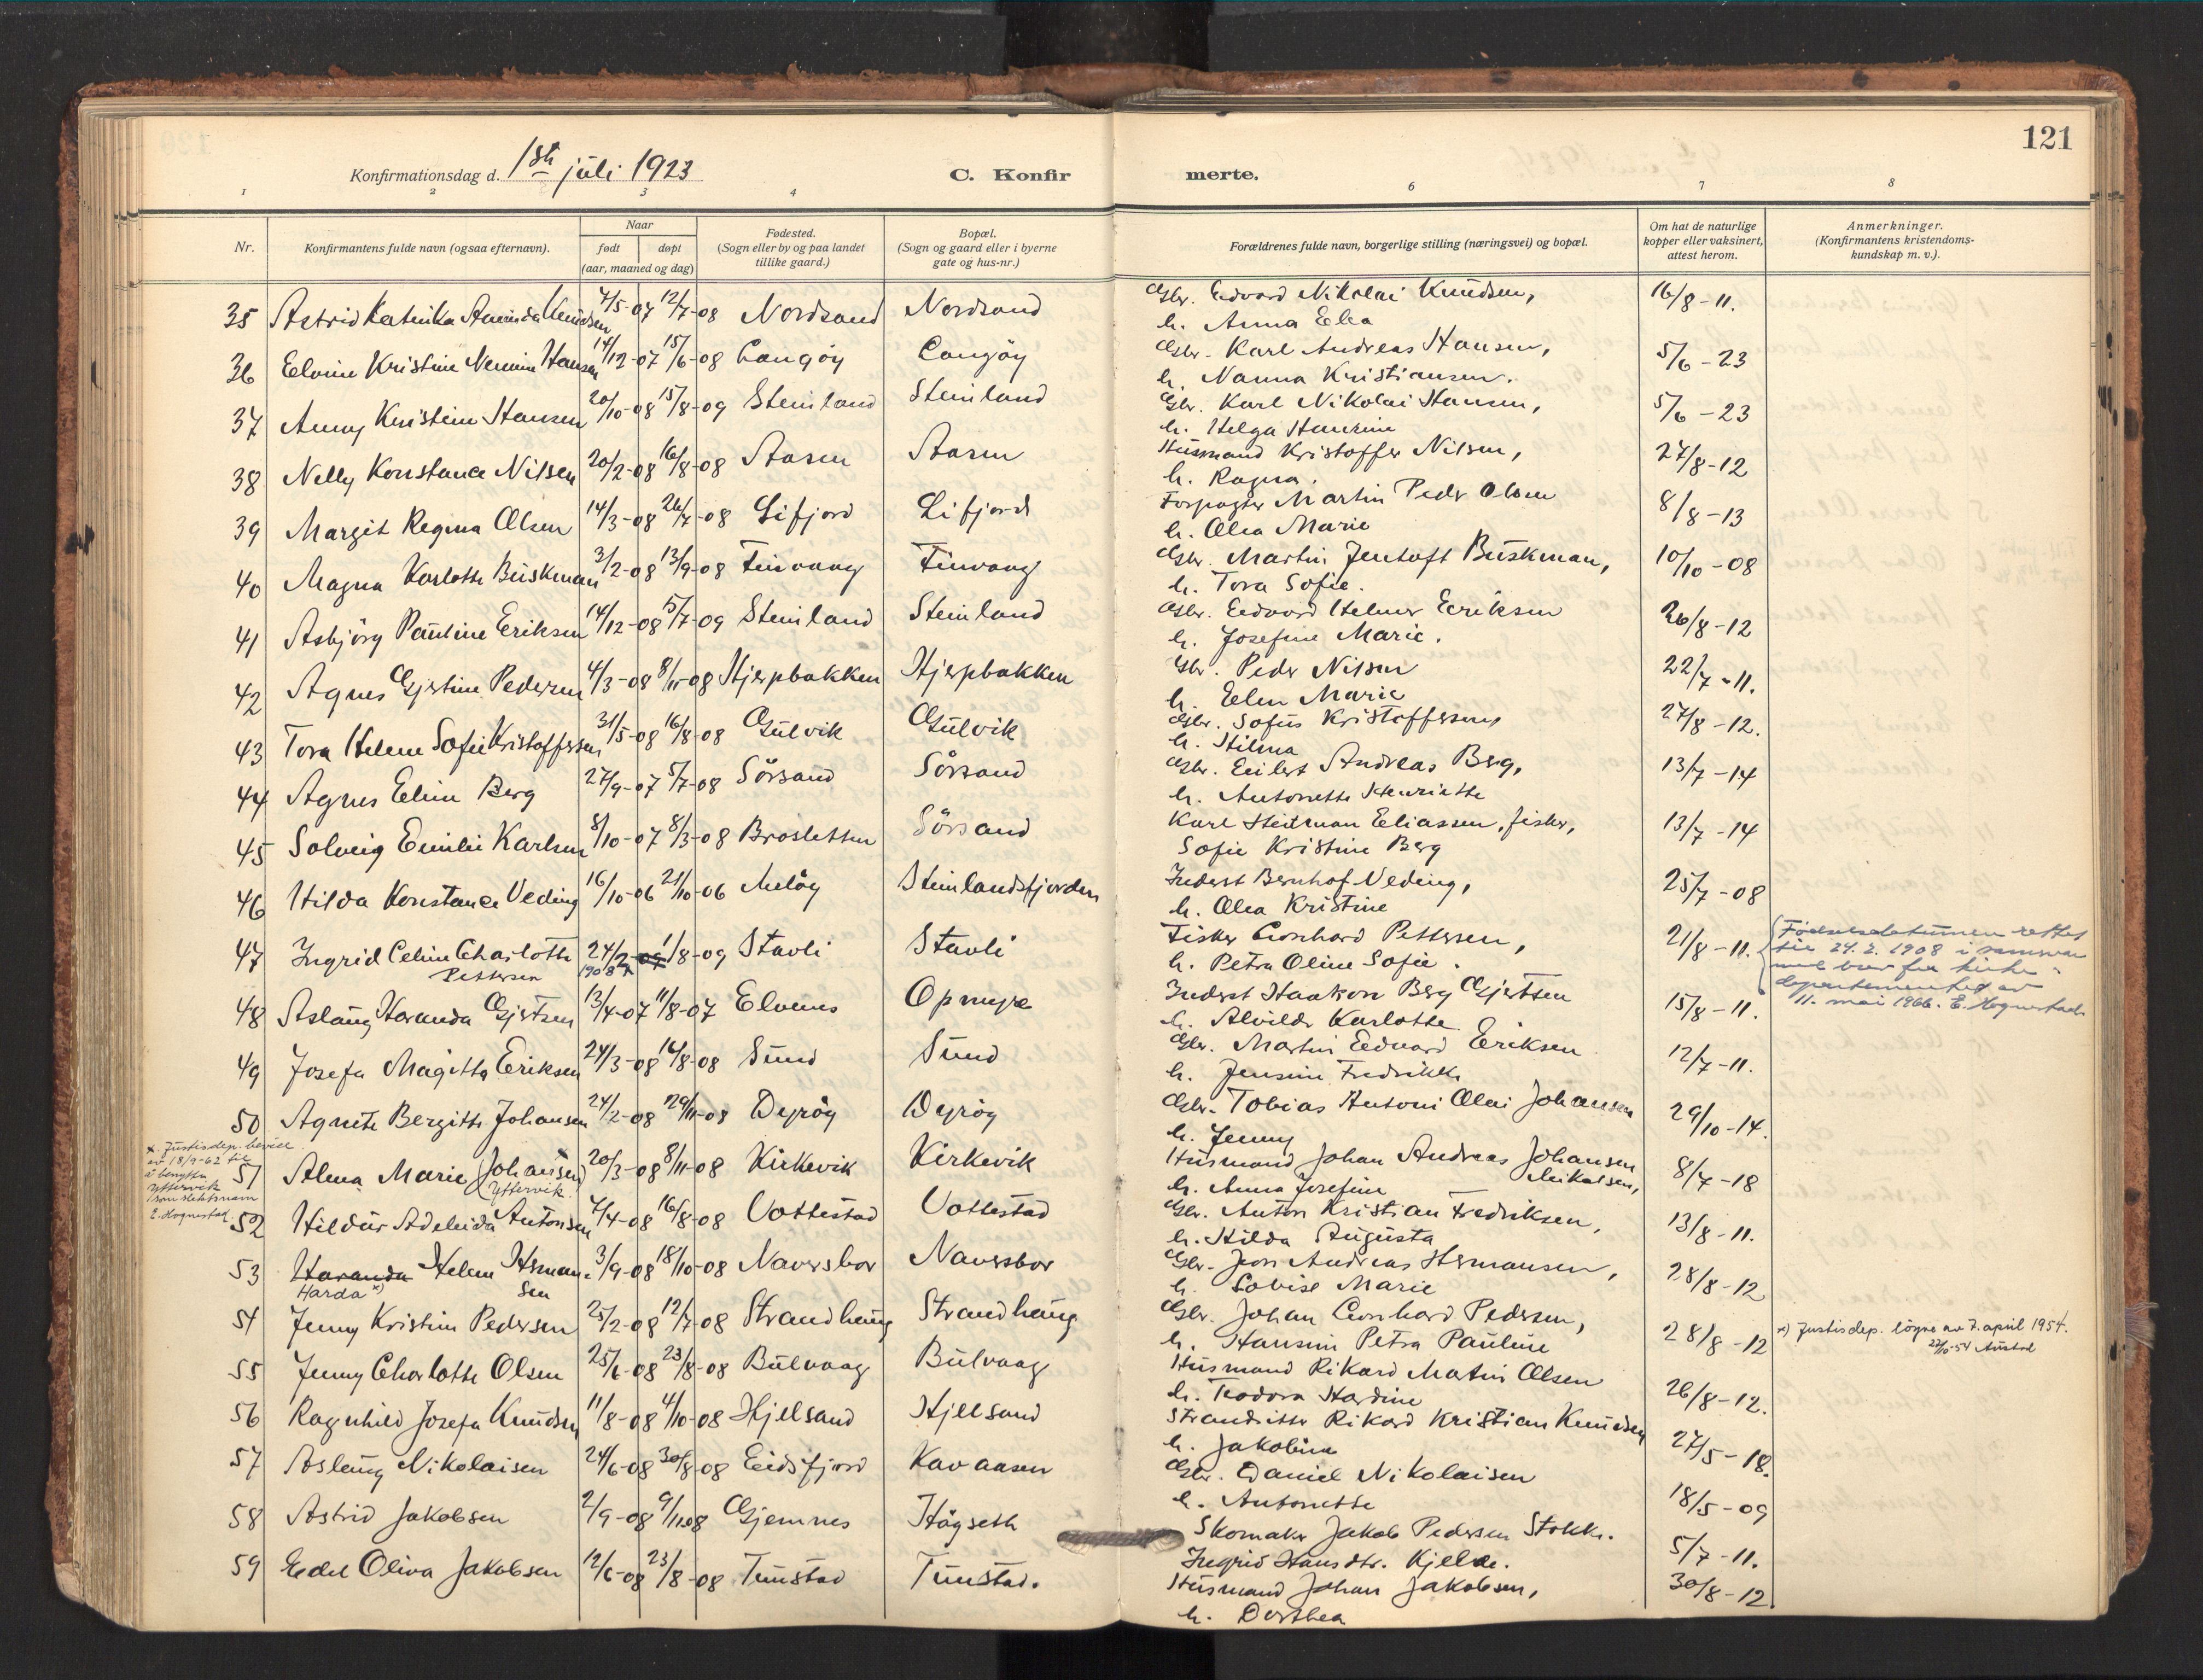 121
Konfirmationsdag d. 1ste juli 1923
C. Konfir merte.
1 2 3 4 6 7 8
Nr.
Konfirmantens fulde navn (ogsaa efternavn).
Naar
født døpt
(aar, maaned og dag)
Fødested.
(Sogn eller by og paa landet
tillike gaard.)
Bopæl.
(Sogn og gaard eller i byerne
gate og hus-nr.)
Forældrenes fulde navn, borgerlige stilling (næringsvei) og bopæl.
Om hat de naturlige
kopper eller vaksinert,
attest herom.
Anmerkninger.
(Konfirmantens kristendoms-
kundskap m. v.).
35 Astrid Katinka Knudsen 7/5-07 12/7-08 Nordsand Nordsand Gbr. Edvard Nikolai Knudsen, 16/8-11.
h. Anna Elea
36 Elvine Kristine Hansen 14/12-07 15/6-08 Langöy Langöy Gbr. Karl Andreas Hansen, 5/6-23
h. Nanna Kristiansen.
37 Anny Kristine Hansen 20/10-08 15/8-09 Steinland Steinland Gbr. Karl Nikolai Hansen, 5/6-23
h. Helga Hansine
38 Nelly Konstance Nilsen 20/2-08 16/8-08 Aasen Aasen Husmand Kristoffer Nilsen, 27/8-12
h. Ragna.
39 Margit Regina Olsen 14/3-08 26/7-08 Lifjord Lifjord Forpagter Martin Peder Olsen 8/8-13
h. Olea Marie
40 Magna Karlotte Buskman 3/2-08 13/9-08 Finvaag Finvaag Gbr. Martin Jentoft Buskman, 10/10-08
h. Tora Sofie.
41 Asbjörg Pauline Eriksen 14/12-08 5/7-09 Steinland Steinland Gbr. Edvard Helmer Eriksen 26/8-12
h. Josefine Marie.
42 Agnes Gjertine Pedersen 4/3-08 8/11-08 Hjerpbakken Hjerpbakken Gbr. Peder Nilsen 22/7-11.
h. Elen Marie
43 Tora Helene Sofie Kristoffersen 31/5-08 16/8-08 Gulvik Gulvik Gbr. Sofus Kristoffersen, 27/8-12.
h. Hilma
44 Agnes Elin Berg 27/9-07 5/7-08 Sörsand Sörsand Gbr. Eilert Andreas Berg, 13/7-14
h. Antonette Henriette
45 Solveig Emilie Karlsen 8/10-07 8/3-08 Brosletten Sörsand Karl Heitman Eliassen, fisker, 13/7-14
Sofie Kristine Berg
46 Hilda Konstance Veding 16/10-06 21/10-06 Melöy Steinlandsfjorden Inderst Bernhof Veding, 25/7-08
h. Olea Kristine
47 Ingrid Celine Charlotte 24/2-09 1/8-09 Stavli Stavli Fisker Leonhard Pettersen, 21/8-11.
Pettersen 1908 h. Petra Oline Sofie.
Födselsdatumen rettet
til 24.2.1908 i samsvar
med brev fra kirke-
departementet av
11. mai 1966. E. Hognestad
48 Aslaug Haranda Gjertsen 13/4-07 11/8-07 Elvenes Opmyre Inderst Haakon Berg Gjertsen 15/8-11.
h. Alvilde Karlotte
49 Josefa Magitta Eriksen 24/3-08 16/8-08 Sund Sund Gbr. Martin Edvard Eriksen 12/7-11.
h. Jensine Fredrikke
50 Agnete Bergitte Johansen 24/2-08 29/11-08 Dyröy Dyröy Gbr. Tobias Antoni Olai Johansen 29/10-14.
h. Jenny
x. Justisdep. bevill.
av 18/9-62 til
å benytte
Yttervik
som slektsnavn
E. Hognestad
51 Alma Marie Johansen x 20/3-08 8/11-08 Kirkevik Kirkevik Husmand Johan Andreas Johansen 8/7-18
Yttervik h. Anna Josefine Mikalsen,
52 Hildur Adeleida Antonsen 7/4-08 16/8-08 Vottestad Vottestad Gbr. Anton Kristian Fredriksen, 13/8-11.
h. Hilda Augusta
53 Haranda Helene Herman- 3/9-08 18/10-08 Naversbor Naversbor Gbr. Jon Andreas Hermansen, 28/8-12
Harda x) sen h. Lovise Marie
54 Jenny Kristine Pedersen 25/2-08 12/7-08 Strandheng Strandheng Gbr. Johan Leonhard Pedersen, 28/8-12
h. Hansine Petra Pauline
x) Justisdep. löyve av 7. april 1954.
22/10-54 Austad
55 Jenny Charlotte Olsen 25/6-08 23/8-08 Bulvaag Bulvaag Husmand Rikard Matin Olsen 26/8-12.
h. Teodora Hardine
56 Ragnhild Josefa Knudsen 11/8-08 4/10-08 Hjellsand Hjellsand Strandsitter Rikard Kristian Knudsen 27/5-18.
h. Jakobine
57 Aslaug Nikolaisen 24/6-08 30/8-08 Eidsfjord Kavaasen Gbr. Daniel Nikolaisen 18/5-09
h. Antonette
58 Astrid Jakobsen 2/9-08 9/11-08 Gjemnes Högseth Skomaker Jakob Pedersen Stokk. 5/7-11.
Ingrid Hansdtr. Kjelde.
59 Edel Oliva Jakobsen 12/6-08 23/8-08 Tunstad Tunstad. Husmand Johan Jakobsen, 30/8-12.
h. Dorthea